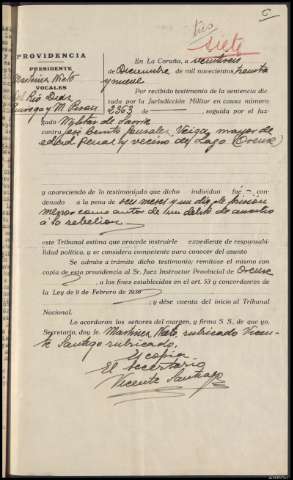 PROVIDENCIA
PRESIDENTE
Martinez Nieto
VOCALES
del Rio Diaz
y M. Pesos
siete
En La Coruña, a veintiseis
de Diciembre de mil novecientos treinta
y nueve
Por recibido testimonio de la sentencia dic-
tada por la Jurisdicción Militar en causa número
2363, seguida por el Juz-
gado Militar de Sarria
contra José Benito González Veiga, mayor de
edad Penal y vecino de Lago (Orense)
y apareciendo de lo testimoniado que dicho individuo fué con-
denado a la pena de seis meses y un dia de prision
menor como autor de un delito de auxilio
a la rebelion
este Tribunal estima que procede instruirle expediente de responsabi-
lidad política, y se considera competente para conocer del asunto
Se admite a trámite dicho testimonio; remítase el mismo con
copia de esta providencia al Sr. Juez Instructor Provincial de Orense
, a los fines establecidos en el art. 53 y concordantes de
la Ley de 9 de Febrero de 1939, y dése cuenta del inicial al Tribunal
Nacional.
Lo acordaron los señores del margen, y firma S. S. de que yo,
Secretario, doy fe. Martinez Nieto, rubricado Vicen-
te Santiago rubricado.
Es copia
El Secretario
Vicente Santiago